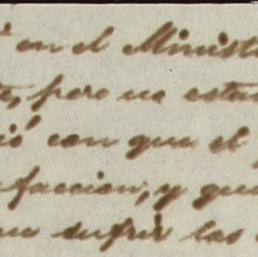 en el Minist
te, pero no esta
ió con que el
faccion, y que
sufrir las